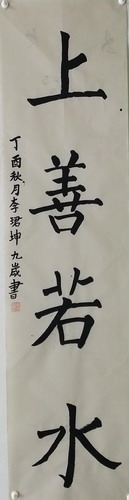 上善若水
丁酉秋月李珺坤九歲書